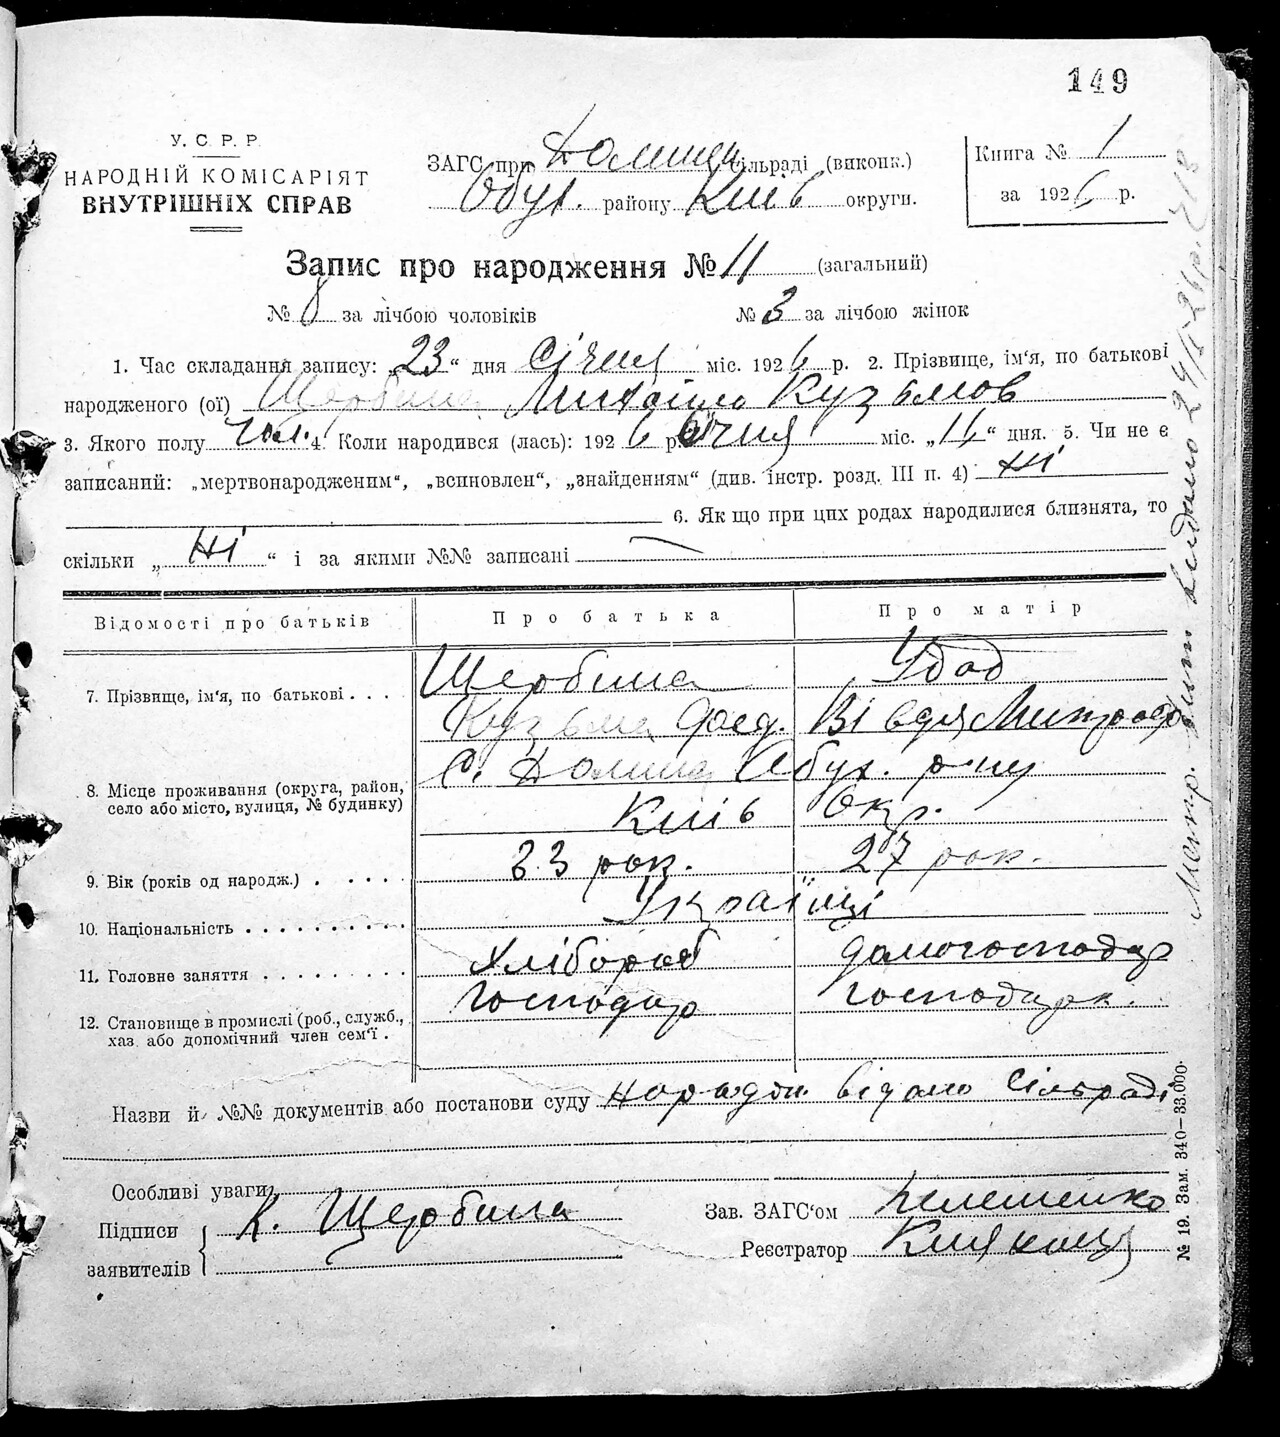 149
У. С. Р. Р.
НАРОДНІЙ КОМІСАРІЯТ
ВНУТРІШНІХ СПРАВ
ЗАГС при Долина сільраді (виконк.)
Обух. району Київ округи.
Книга № 1
за 1926 р.
Запис про народження № 11 (загальний)
№ 8 за лічбою чоловіків № 3 за лічбою жінок
1. Час складання запису: „23“ дня Січня міс. 1926 р. 2. Прізвище, ім‘я, по батькові
народженого (ої) Щербина Михайло Кузьмов
3. Якого полу чол. 4. Коли народився (лась): 1926 р. Січня міс. „ “ дня. 5. Чи не є
записаний: „мертвонародженим“, „всиновлен“, „знайденням“ (див. інстр. розд. III п. 4) Ні
6. Як що при цих родах народилися близнята, то
скільки „Ні“ і за якими №№ записані —
Відомості про батьків Про батька Про матір
7. Прізвище, ім‘я, по батькові . . . Щербина Удод
Кузьма Фед. Вівдя Митроф
8. Місце проживання (округа, район, село або місто, вулиця, № будинку) С. Долина Обух. р-ну
Київ Окр.
9. Вік (років од народж.) . . . . . 33 рок. 27 рок.
10. Національність . . . . . . . . . . Українці
11. Головне заняття . . . . . . . . . Хлібороб домогосподар
12. Становище в промислі (роб., служб., хаз. або допомічний член сем‘ї . Господар господарк.
Назви й №№ документів або постанови суду відомо Сільраді
Особливі уваги
Підписи заявителів К. Щербина
Зав. ЗАГС‘ом
Реєстратор
№ 19. Зам. 340—33.000.
Метр. видано 24/I-26р.